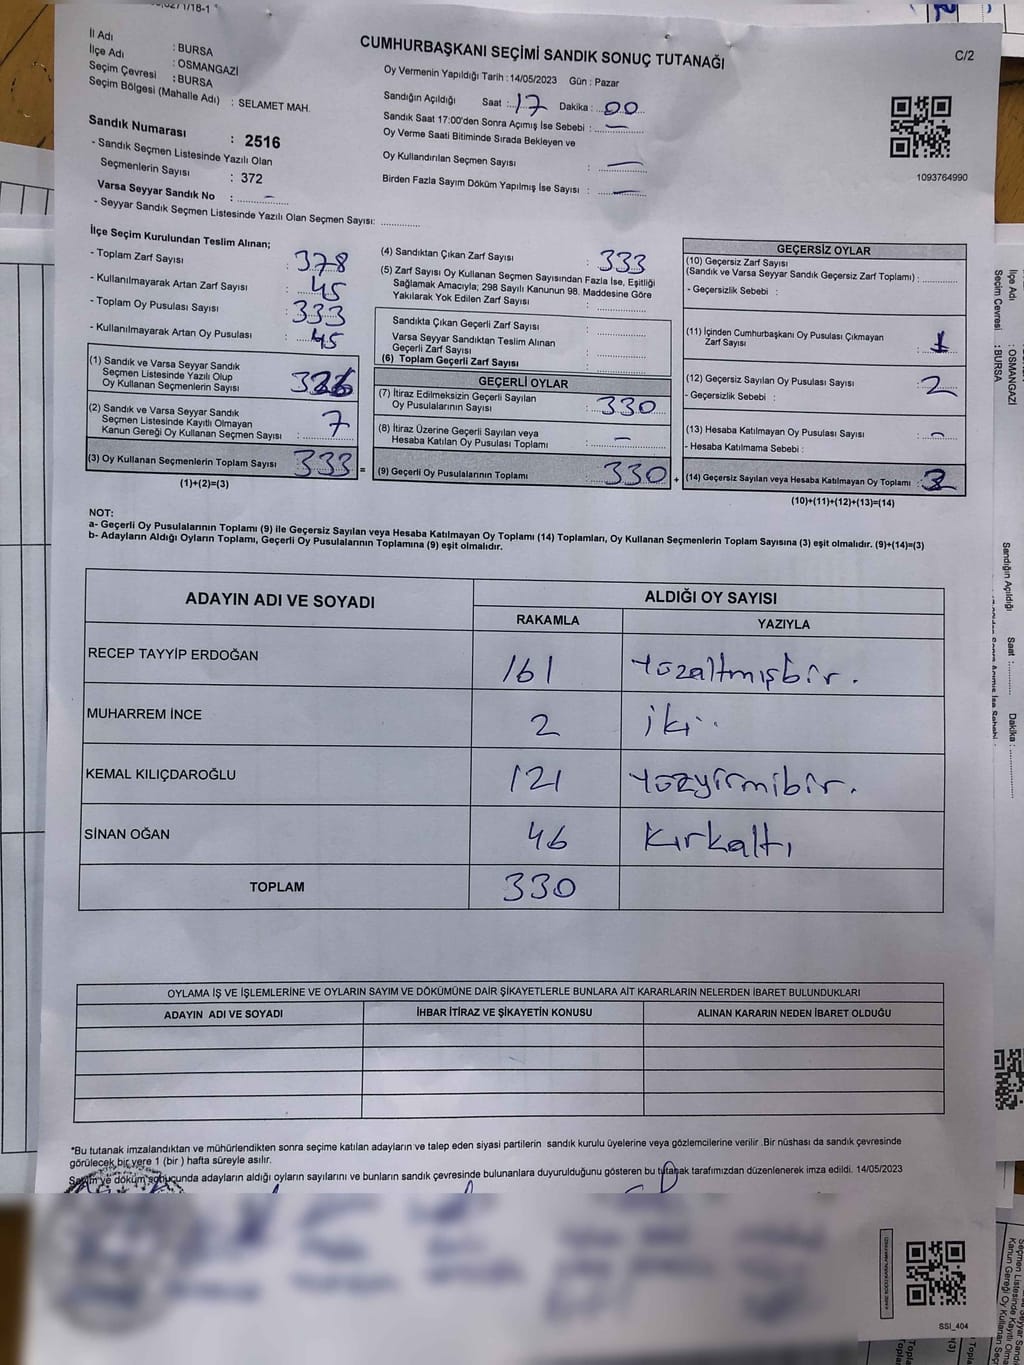 CUMHURBAŞKANI SEÇİMİ SANDIK SONUÇ TUTANAĞI
C/2
İl Adı : BURSA
İlçe Adı : OSMANGAZİ
Seçim Çevresi : BURSA
Seçim Bölgesi (Mahalle Adı) : SELAMET MAH.
Sandık Numarası : 2516
- Sandık Seçmen Listesinde Yazılı Olan
Seçmenlerin Sayısı : 372
Varsa Seyyar Sandık No : –
- Seyyar Sandık Seçmen Listesinde Yazılı Olan Seçmen Sayısı: ..............
Oy Vermenin Yapıldığı Tarih : 14/05/2023 Gün : Pazar
Sandığın Açıldığı Saat : 17 Dakika : 00
Sandık Saat 17:00'den Sonra Açımış İse Sebebi : –
Oy Verme Saati Bitiminde Sırada Bekleyen ve
Oy Kullandırılan Seçmen Sayısı : –
Birden Fazla Sayım Döküm Yapılmış İse Sayısı : –
1093764990
İlçe Seçim Kurulundan Teslim Alınan;
- Toplam Zarf Sayısı : 378
- Kullanılmayarak Artan Zarf Sayısı : 45
- Toplam Oy Pusulası Sayısı : 333
- Kullanılmayarak Artan Oy Pusulası : 45
(1) Sandık ve Varsa Seyyar Sandık
Seçmen Listesinde Yazılı Olup
Oy Kullanan Seçmenlerin Sayısı : 326
(2) Sandık ve Varsa Seyyar Sandık
Seçmen Listesinde Kayıtlı Olmayan
Kanun Gereği Oy Kullanan Seçmen Sayısı : 7
(3) Oy Kullanan Seçmenlerin Toplam Sayısı : 333 =
(1)+(2)=(3)
(4) Sandıktan Çıkan Zarf Sayısı : 333
(5) Zarf Sayısı Oy Kullanan Seçmen Sayısından Fazla İse, Eşitliği
Sağlamak Amacıyla; 298 Sayılı Kanunun 98. Maddesine Göre
Yakılarak Yok Edilen Zarf Sayısı :
Sandıkta Çıkan Geçerli Zarf Sayısı :
Varsa Seyyar Sandıktan Teslim Alınan
Geçerli Zarf Sayısı :
(6) Toplam Geçerli Zarf Sayısı :
GEÇERLİ OYLAR
(7) İtiraz Edilmeksizin Geçerli Sayılan
Oy Pusulalarının Sayısı : 330
(8) İtiraz Üzerine Geçerli Sayılan veya
Hesaba Katılan Oy Pusulası Toplamı : –
(9) Geçerli Oy Pusulalarının Toplamı : 330 +
GEÇERSİZ OYLAR
(10) Geçersiz Zarf Sayısı
(Sandık ve Varsa Seyyar Sandık Geçersiz Zarf Toplamı) :
- Geçersizlik Sebebi :
(11) İçinden Cumhurbaşkanı Oy Pusulası Çıkmayan
Zarf Sayısı : 1
(12) Geçersiz Sayılan Oy Pusulası Sayısı : 2
- Geçersizlik Sebebi :
(13) Hesaba Katılmayan Oy Pusulası Sayısı : –
- Hesaba Katılmama Sebebi :
(14) Geçersiz Sayılan veya Hesaba Katılmayan Oy Toplamı : 3
(10)+(11)+(12)+(13)=(14)
NOT:
a- Geçerli Oy Pusulalarının Toplamı (9) ile Geçersiz Sayılan veya Hesaba Katılmayan Oy Toplamı (14) Toplamları, Oy Kullanan Seçmenlerin Toplam Sayısına (3) eşit olmalıdır. (9)+(14)=(3)
b- Adayların Aldığı Oyların Toplamı, Geçerli Oy Pusulalarının Toplamına (9) eşit olmalıdır.
ADAYIN ADI VE SOYADI ALDIĞI OY SAYISI
RAKAMLA YAZIYLA
RECEP TAYYİP ERDOĞAN 161 Yüzaltmışbir.
MUHARREM İNCE 2 iki
KEMAL KILIÇDAROĞLU 121 Yüzyirmibir.
SİNAN OĞAN 46 Kırkaltı
TOPLAM 330
OYLAMA İŞ VE İŞLEMLERİNE VE OYLARIN SAYIM VE DÖKÜMÜNE DAİR ŞİKAYETLERLE BUNLARA AİT KARARLARIN NELERDEN İBARET BULUNDUKLARI
ADAYIN ADI VE SOYADI İHBAR İTİRAZ VE ŞİKAYETİN KONUSU ALINAN KARARIN NEDEN İBARET OLDUĞU
*Bu tutanak imzalandıktan ve mühürlendikten sonra seçime katılan adayların ve talep eden siyasi partilerin sandık kurulu üyelerine veya gözlemcilerine verilir .Bir nüshası da sandık çevresinde
görülecek bir yere 1 (bir ) hafta süreyle asılır.
Sayım ve döküm sonucunda adayların aldığı oyların sayılarını ve bunların sandık çevresinde bulunanlara duyurulduğunu gösteren bu tutanak tarafımızdan düzenlenerek imza edildi. 14/05/2023
SSI_404
İlçe Adı : OSMANGAZİ
Seçim Çevresi : BURSA
Sandığın Açıldığı Saat :............ Dakika :............